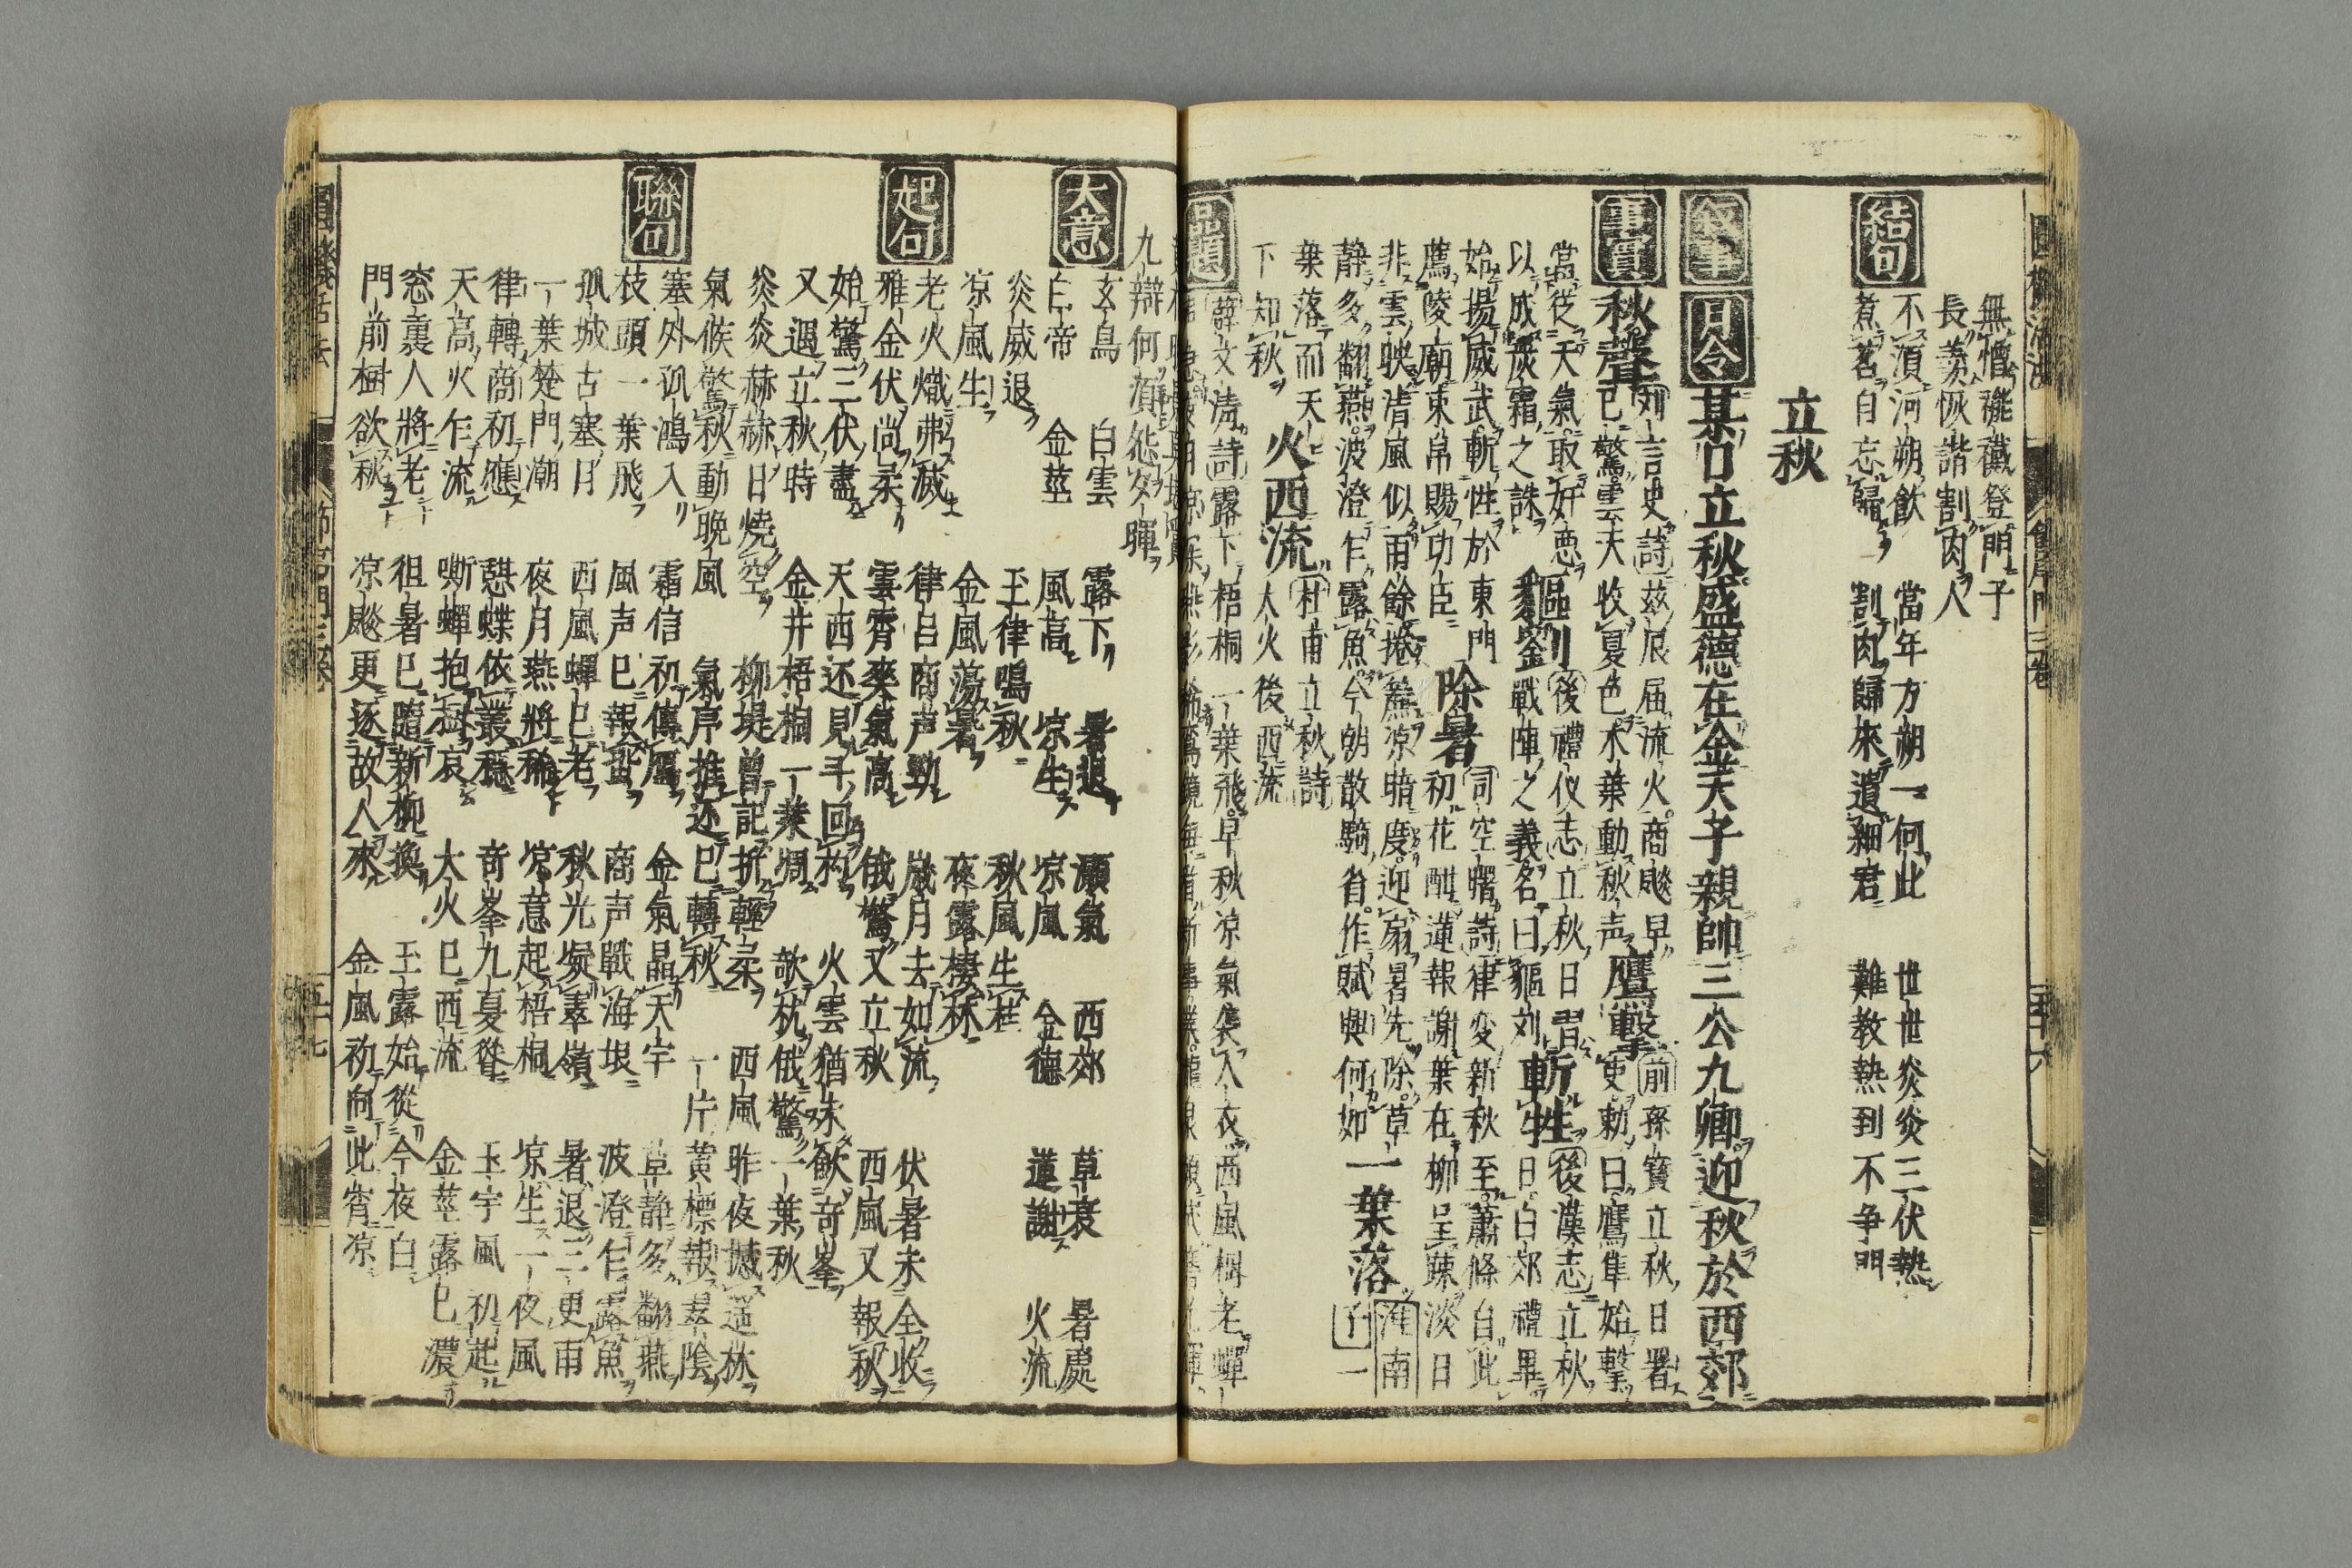 無憎襶襳登門子
長羨恢諧割肉人
結句
不須河朔飲 當年方朔一何此 世世炎炎三伏熱
煮茗自忘歸 割肉歸來遺細君 難教熱到不争門
立秋
叙事 月令 某日立秋盛德在金天子親帥三公九卿迎秋於西郊
事實 秋聲 刘言史詩茲辰届流火商飈早
已驚雲天收夏色木葉動秋声 鷹擊 前孫寶立秋日署
吏勅曰鷹隼始擊
當從天氣取奸惡 貙劉 後禮仪志立秋日習
以成嚴霜之誅 戰陣之義名曰貙刘 斬牲 後漢志立秋
日白郊禮畢
始揚威武斬牲於東門 除暑 司空曙詩律变新秋至蕭條自此
薦陵廟束帛賜功臣 初花酣蓮報謝葉在柳呈疎淡日
非雲映清風似雨餘捲簾凉暗度迎扇暑先除草
静多翻燕波澄乍露魚今朝散騎省作賦興何如 一葉落 淮南
子一
葉落而天
下知秋 火西流 杜甫立秋詩
大火後西流
品題 薛文清詩露下梧桐一葉飛早秋凉氣襲人衣西風樹老蟬
九辯何須怨夕暉
大意
玄鳥 白雲 露下 暑退 灝氣 西郊 草衰 暑處
白帝 金莖 風高 凉生 凉風 金德 蓮謝 火流
炎威退 玉律鳴秋 秋風生桂
凉風生 金風蕩暑 夜露棲林
起句
老火熾弗滅 律吕商声動 歳月去如流 伏暑未全收
雅金伏尚柔 雲霄爽氣高 俄驚又立秋 西風又報秋
始驚三伏盡 天西还見斗回杓 火雲猶未斂竒峯
又遇立秋時 金井梧桐一葉凋 欹枕俄驚一葉秋
炎炎赫赫日燒空 柳堤曾記折輕柔 西風昨夜撼遥林
氣候驚秋動晩風 氣序推还巳轉秋 一片黄標報翠陰
聯句
塞外孤鴻入 霜信初傳雁 金氣晶天宇 草静多翻燕
枝頭一葉飛 風声已報蛩 商声戰海垠 波澄乍露魚
孤城古塞月 西風蟬已老 秋光凝翠嶺 暑退三更雨
一葉楚門潮 夜月燕將稀 凉意起梧桐 凉生一夜風
律轉商初應 憩蝶依叢穩 竒峯九夏從 玉宇風初起
天高火乍流 嘶蟬抱樹哀 大火已西流 金莖露已濃
窓裏人將老 徂暑已隨新柳換 玉露始從今夜白
門前樹欲秋 凉飈更逐故人來 金風初向此宵凉